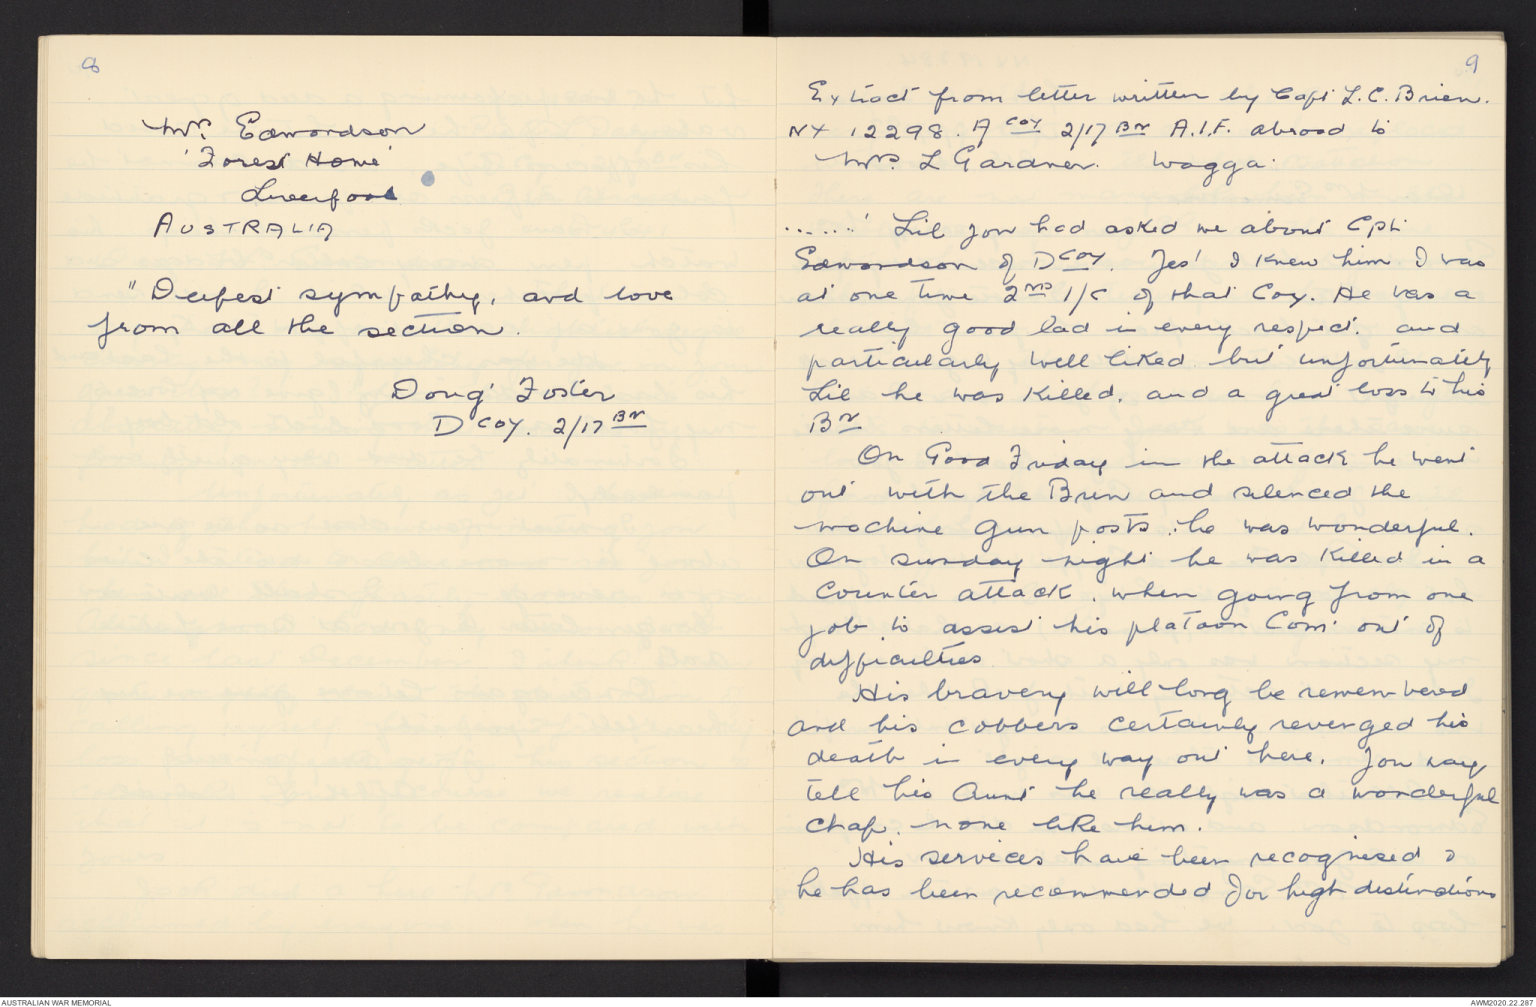 8
Mrs. Edmondson
'Forest Home'
Liverpool
AUSTRALIA
"Deepest sympathy, and love
from all the section.
Doug Foster
D Coy. 2/17 Bn
9
Extract from letter written by Capt L.C. Brien.
NX 12298. A Coy 2/17 Bn A.I.F. abroad to
Mrs. L Gardner. Wagga.
......' Lil you had asked me about Cpl.
Edmondson of D Coy. Yes! I knew him I was
at one time 2nd I/C of that Coy. He was a
really good lad in every respect. and
particularly well liked but unfortunately
Lil he was killed, and a great loss to his
Bn
On Good Friday in the attack he went
out with the Bren and silenced the
machine gun posts. he was wonderful.
On Sunday night he was killed in a
counter attack, when going from one
job to assist his platoon Com. out of
difficulties
His bravery will long be remembered
and his cobbers certainly revenged his
death in every way out here. You may
tell his Aunt he really was a wonderful
chap, none like him.
His services have been recognised &
he has been recommended for high distinctions
AUSTRALIAN WAR MEMORIAL
AWM2020.22.287